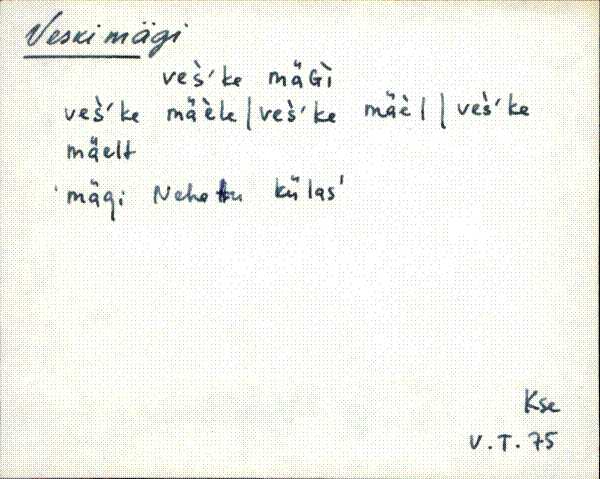 Veski mägi
veš̀'ke mäGì
veš̀'ke mäèle | veš̀'ke mäèl | veš̀'ke
mäelt
'mägi Nehatu külas'
Kse
V.T. 75